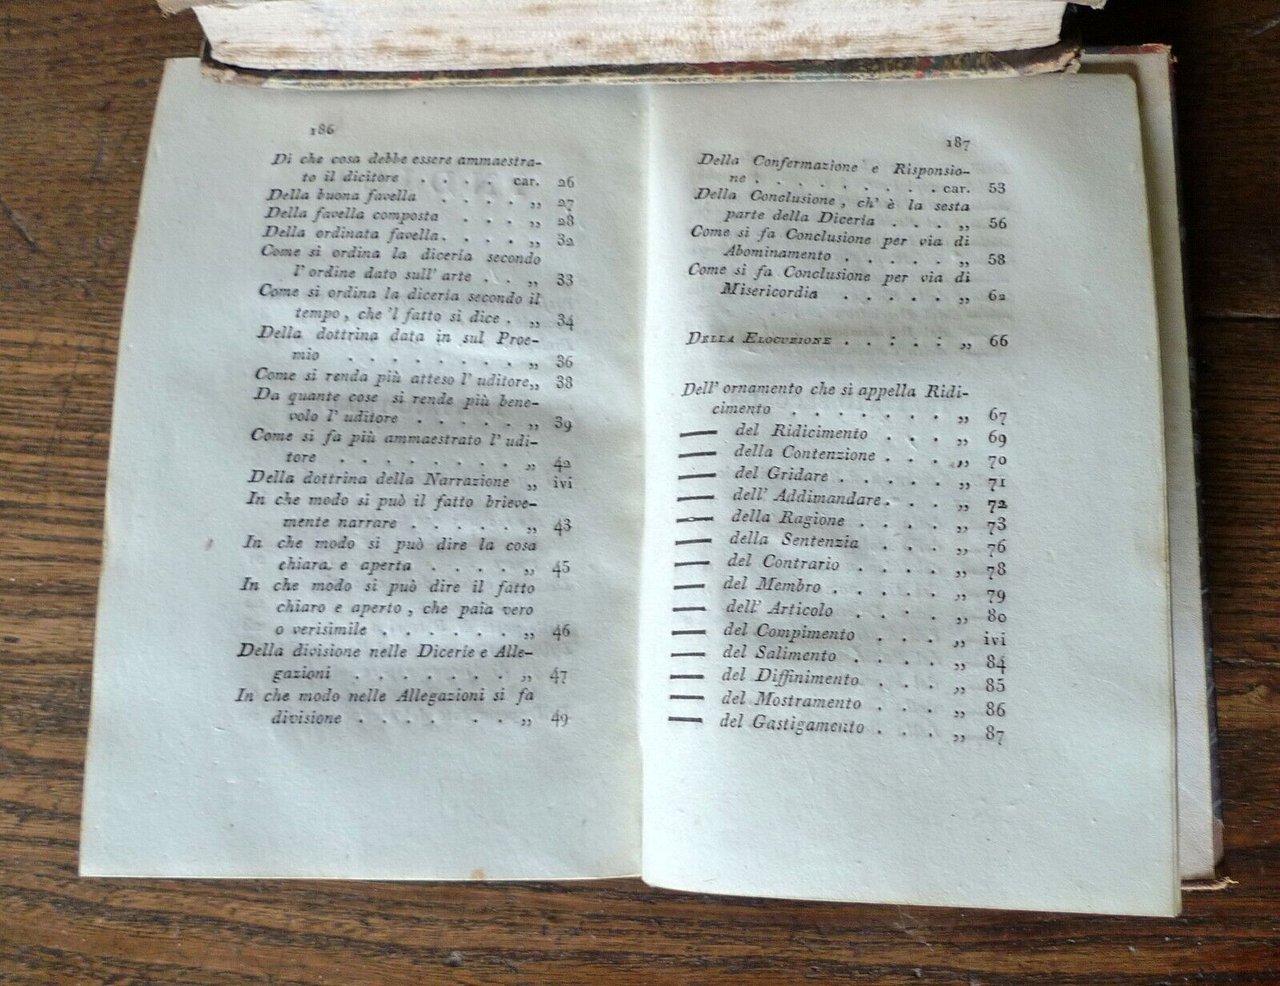 186
Di che cosa debbe essere ammaestra-
to il dicitore . . . . car. 26
Della buona favella . . . . „ 27
Della favella composta . . . . „ 28
Della ordinata favella . . . . „ 32
Come si ordina la diceria secondo
l' ordine dato sull' arte . . „ 33
Come si ordina la diceria secondo il
tempo, che 'l fatto si dice . „ 34
Della dottrina data in sul Proe-
mio . . . . . . . . „ 36
Come si renda più atteso l' uditore „ 38
Da quante cose si rende più bene-
volo l' uditore . . . . . „ 39
Come si fa più ammaestrato l' udi-
tore . . . . . . . . „ 42
Della dottrina della Narrazione „ ivi
In che modo si può il fatto brieve-
mente narrare . . . . . „ 43
In che modo si può dire la cosa
chiara e aperta . . . . „ 45
In che modo si può dire il fatto
chiaro e aperto, che paia vero
o verisimile . . . . . . „ 46
Della divisione nelle Dicerie e Alle-
gazioni . . . . . . . „ 47
In che modo nelle Allegazioni si fa
divisione . . . . . . „ 49
187
Della Confermazione e Risponsio-
ne . . . . . . . . car. 53
Della Conclusione, ch' è la sesta
parte della Diceria . . . „ 56
Come si fa Conclusione per via di
Abominamento . . . . . „ 58
Come si fa Conclusione per via di
Misericordia . . . . . „ 62
DELLA ELOCUZIONE . . : . : „ 66
Dell' ornamento che si appella Ridi-
cimento . . . . . . . „ 67
— del Ridicimento . . . . „ 69
— della Contenzione . . . . „ 70
— del Gridare . . . . . „ 71
— dell' Addimandare . . . „ 72
— della Ragione . . . . „ 73
— della Sentenzia . . . . „ 76
— del Contrario . . . . „ 78
— del Membro . . . . . „ 79
— dell' Articolo . . . . „ 80
— del Compimento . . . „ ivi
— del Salimento . . . . „ 84
— del Diffinimento . . . „ 85
— del Mostramento . . . „ 86
— del Gastigamento . . . „ 87